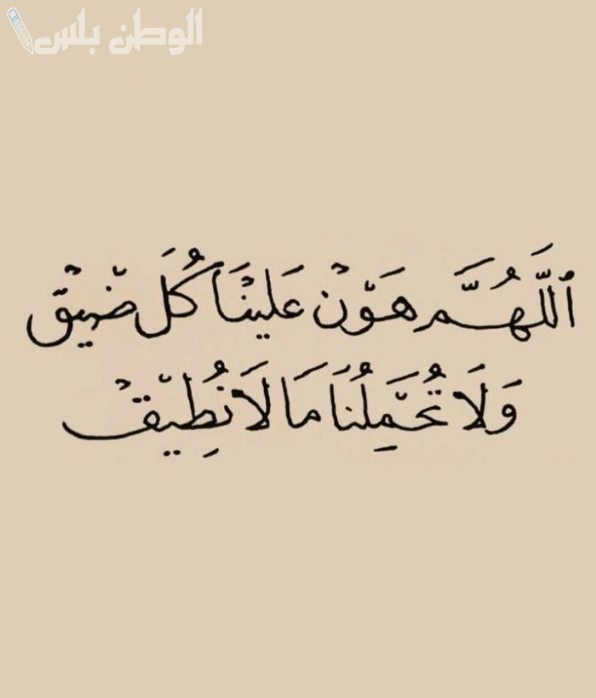 الوطن بلس
ٱللَّهُمَّ هَوْن عَلَينَا كُلَ ضْيق
وَلَا تُحَمِلُنَا مَا لَا نُطِيْق